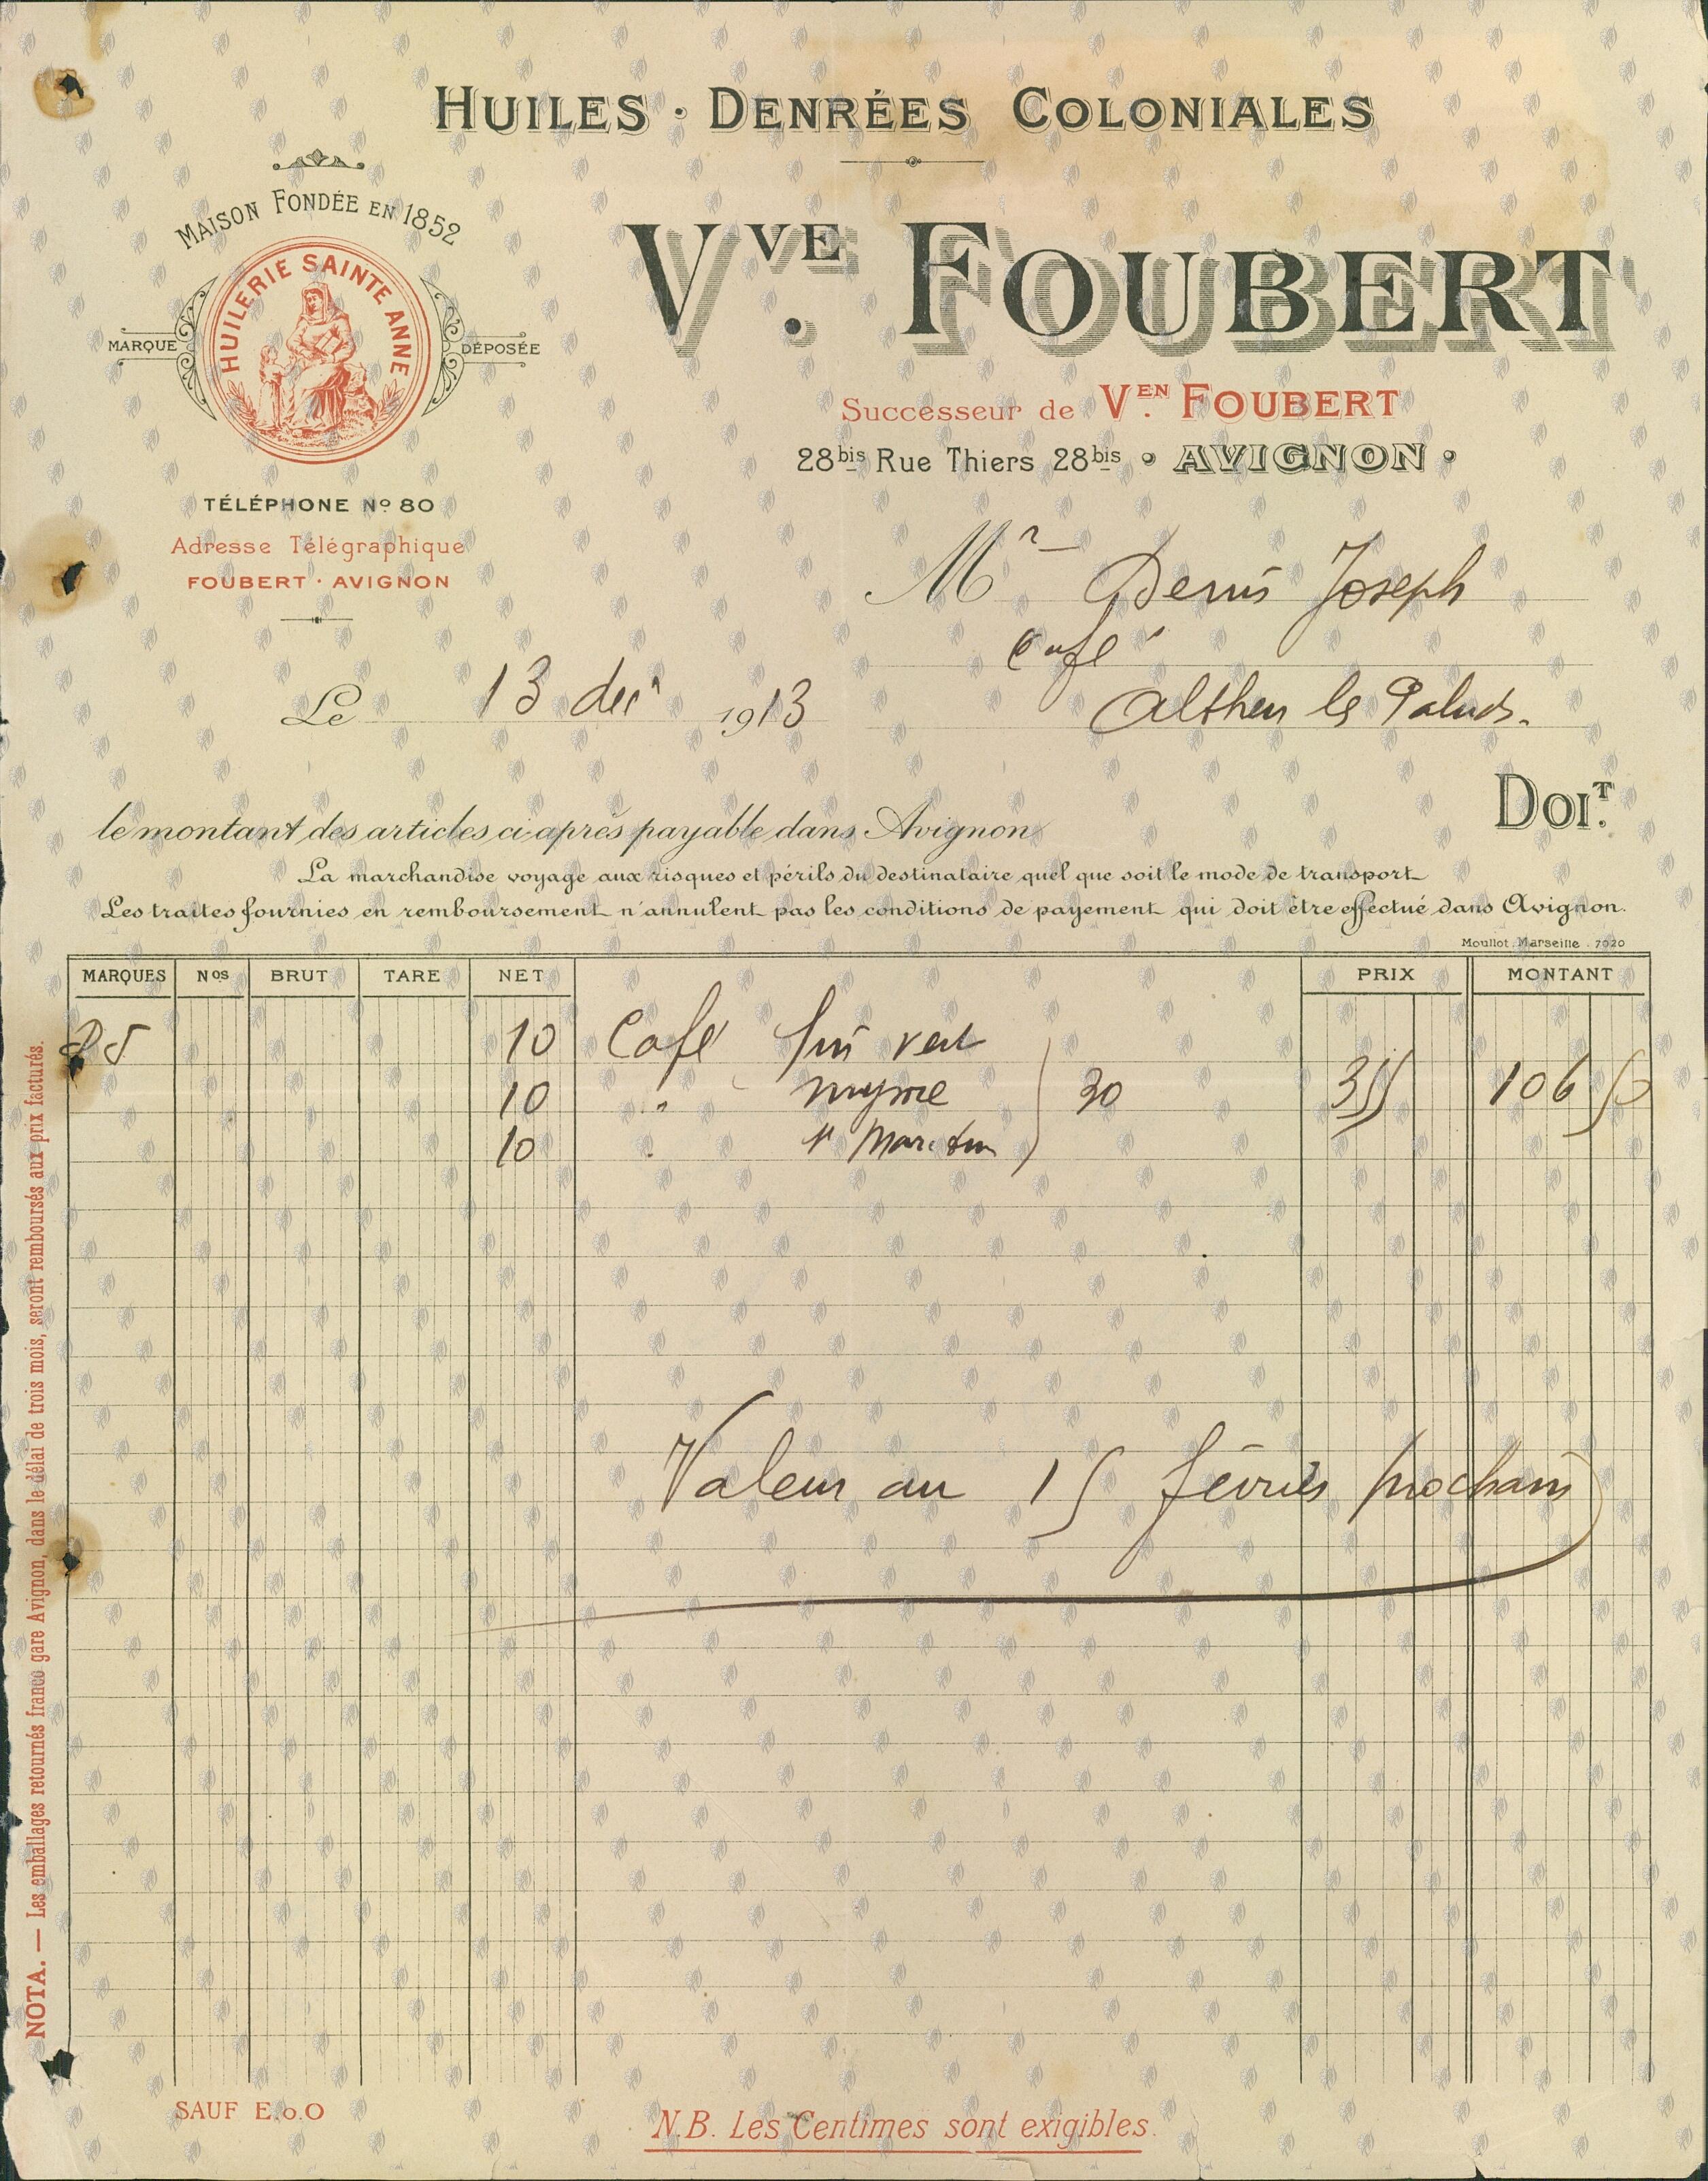 HUILES · DENRÉES COLONIALES
MAISON FONDÉE EN 1852
HUILERIE SAINTE ANNE
MARQUE DÉPOSÉE
VVE. FOUBERT
Successeur de VEN. FOUBERT
28bis Rue Thiers 28bis · AVIGNON ·
TÉLÉPHONE No 80
Adresse Télégraphique
FOUBERT · AVIGNON
Mr Denis Joseph
Café
Althen les Paluds.
Le 13 dec 1913
DOIT.
le montant des articles ci-après payable dans Avignon
La marchandise voyage aux risques et périls du destinataire quel que soit le mode de transport
Les traites fournies en remboursement n'annulent pas les conditions de payement qui doit être effectué dans Avignon.
Moullot. Marseille. 7020
MARQUES Nos BRUT TARE NET PRIX MONTANT
10 Café fin vert
10 " mysore 30 355 106 50
10 "
Valeur au 15 février prochain
NOTA. — Les emballages retournés franco gare Avignon, dans le délai de trois mois, seront remboursés aux prix facturés.
SAUF E.o.O
N.B. Les Centimes sont exigibles.